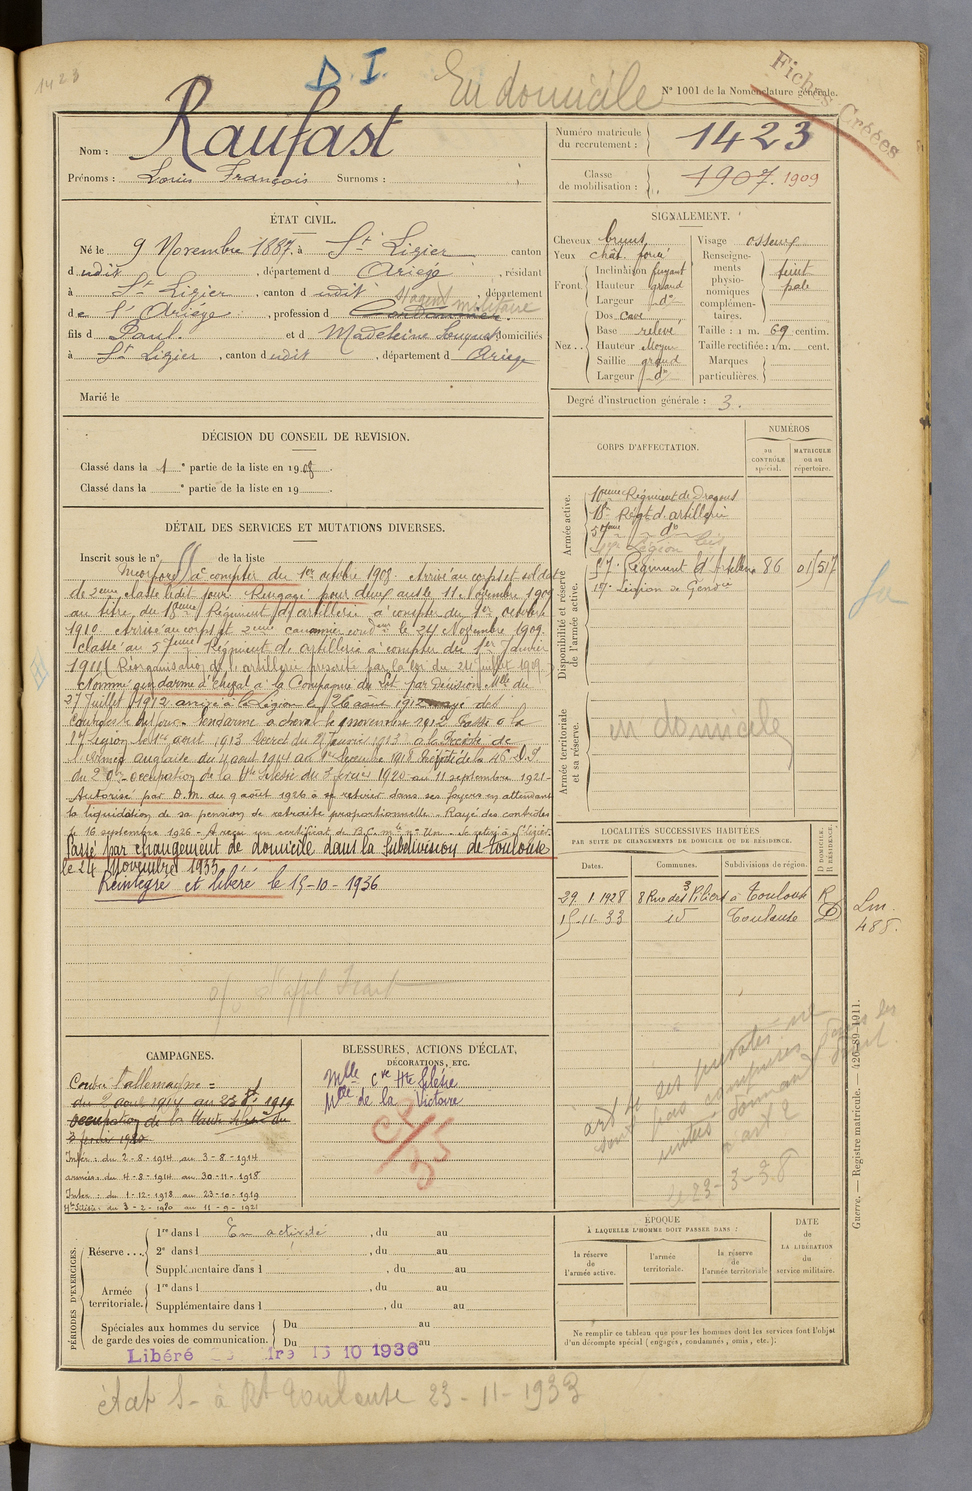 1423
D. I.
En domicile
N° 1001 de la Nomenclature générale.
Fiches Créées
Nom : Raufast
Prénoms : Louis François Surnoms :
Numéro matricule du recrutement : 1423
Classe de mobilisation : 1907. 1909
ÉTAT CIVIL.
Né le 9 Novembre 1887, à St Lizier canton
d udit, département d Ariège, résidant
à St Lizier, canton d udit, département
de l'Ariège, profession d Cordonnier. agent militaire
fils d Paul. et d Madeleine domiciliés
à St Lizier, canton d udit, département d Ariège
Marié le
SIGNALEMENT.
Cheveux bruns
Yeux chât. foncé
Front. Inclinaison fuyant
Hauteur grand
Largeur do
Nez.. Dos cave
Base relevé
Hauteur Moyen
Saillie grand
Largeur do
Visage osseux
Renseignements physionomiques complémentaires. teint pale
Taille : 1 m. 69 centim.
Taille rectifiée : 1m. cent.
Marques particulières.
Degré d'instruction générale : 3.
DÉCISION DU CONSEIL DE REVISION.
Classé dans la 1e partie de la liste en 1908.
Classé dans la e partie de la liste en 19
DÉTAIL DES SERVICES ET MUTATIONS DIVERSES.
Inscrit sous le n° de la liste
Incorporé à compter du 1er octobre 1908. Arrivé au corps et soldat
de 2eme classe ledit jour. Rengagé pour deux ans le 11 Novembre 1909
au titre du 18eme Régiment d'artillerie à compter du 1er octobre
1910. Arrivé au corps et 2eme canonnier cond. le 24 Novembre 1909.
Classé au 57eme Régiment de artillerie à compter du 1er Janvier
1911 (Réorganisation de l'artillerie prescrite par la loi du 24 juillet 1909)
Nommé gendarme à cheval à la Compagnie du Lot par décision Mlle du
27 Juillet 1912 arrivé à la Légion le 26 août 1912 rayé des
contrôles le dit jour. Gendarme à cheval le novembre 1912. Passé à la
17e Légion le 14 août 1913 Décret du 21 Janvier 1913. à la Prévôté de
l'armée anglaise du 4 août 1914 au 1er décembre 1918 Prévôté de la 46e D.I.
du 2 occupation de la Hte Silésie du 3 février 1920 au 11 septembre 1921-
Autorisé par D.M. du 9 août 1926 à se retirer dans ses foyers en attendant
la liquidation de sa pension de retraite proportionnelle. Rayé des contrôles
le 16 septembre 1926 - A reçu un certificat de B.C. mle n° Un. Se retire à St Lizier.
Passé par changement de domicile dans la Subdivision de Toulouse
le 24 Novembre 1933
Réintégré et libéré le 15-10-1936
CORPS D'AFFECTATION.
NUMÉROS
au CONTRÔLE spécial.
MATRICULE ou au répertoire.
Armée active.
10eme Régiment de Dragons
18e Régt d'artillerie
57eme do
17e Légion bis
Disponibilité et réserve de l'armée active.
57. Régiment d'Artillerie 86 01517
17e Légion de Gendie
Armée territoriale et sa réserve.
en domicile
LOCALITÉS SUCCESSIVES HABITÉES
PAR SUITE DE CHANGEMENTS DE DOMICILE OU DE RÉSIDENCE.
Dates. Communes. Subdivisions de région. D DOMICILE. R RÉSIDENCE.
29. 1 1928 8 Rue des 3 Piliers à Toulouse R
15-11-33 id Toulouse D
Lm.
485.
CAMPAGNES.
Contre l'allemagne =
du 2 aout 1914 au 23 8bre 1919
occupation de la Haute Silésie du
3 février 1920
Intér : du 2-8-1914 au 3-8-1914
armées : du 4-8-1914 au 30-11-1918
Intér : du 1-12-1918 au 23-10-1919
Hte Silésie : du 3-2-1920 au 11-9-1921
BLESSURES, ACTIONS D'ÉCLAT, DÉCORATIONS, ETC.
Mlle Cve Hte Silésie
Mlle de la Victoire
le 23-3-38
PÉRIODES D'EXERCICES.
Réserve.... 1re dans l En activité, du au
2e dans l, du au
Supplémentaire dans l, du au
Armée territoriale. 1re dans l, du au
Supplémentaire dans l, du au
Spéciales aux hommes du service de garde des voies de communication. Du au
Du au
Libéré 15 10 1936
ÉPOQUE
À LAQUELLE L'HOMME DOIT PASSER DANS :
la réserve de l'armée active.
l'armée territoriale.
la réserve de l'armée territoriale
DATE de LA LIBÉRATION du service militaire.
Ne remplir ce tableau que pour les hommes dont les services font l'objet d'un décompte spécial (engagés, condamnés, omis, etc.).
Guerre. — Registre matricule. — 426-89-1911.
état S- à Rt Toulouse 23-11-1933